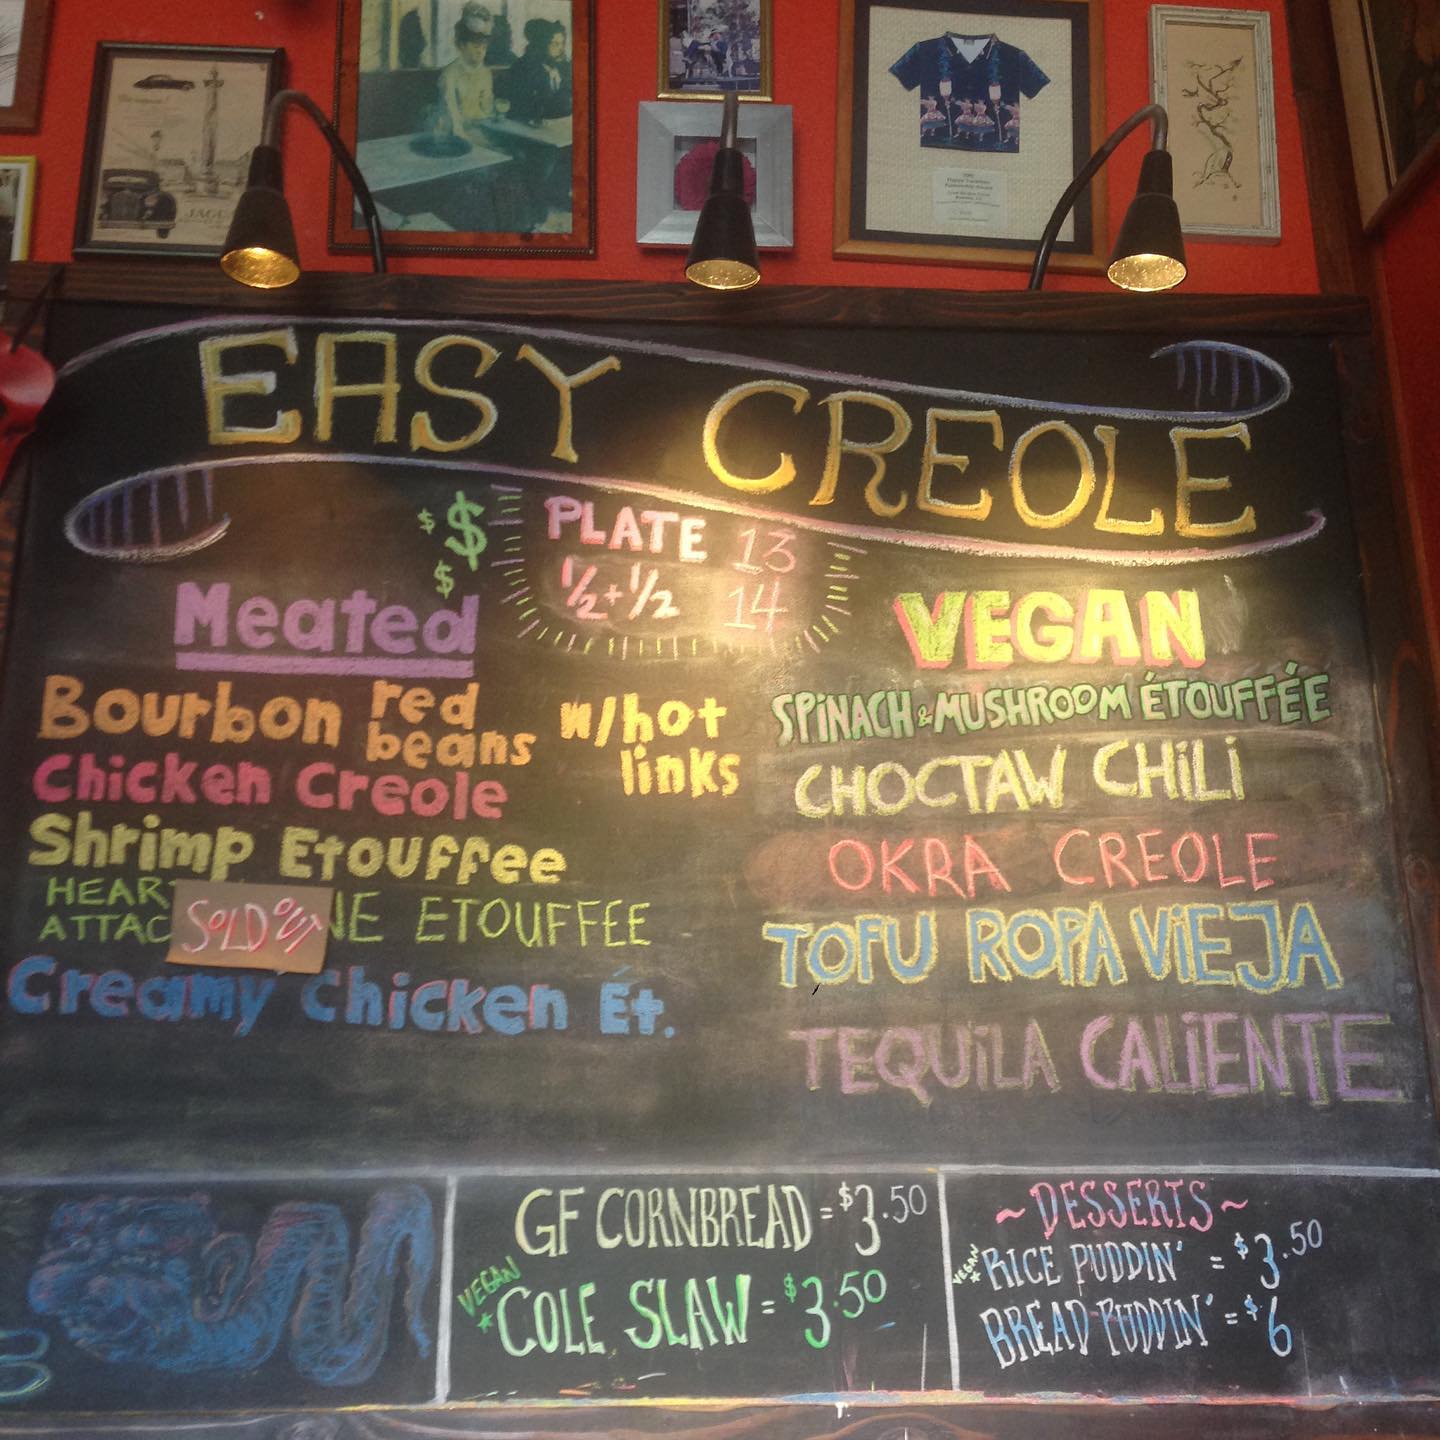 JAGU
EASY CREOLE
$ $ $
PLATE 13
½+½ 14
Meated
Bourbon red beans w/hot links
Chicken Creole
Shrimp Etouffee
HEAR
ATTAC
SOLD OUT
NE ETOUFFEE
Creamy Chicken Ét.
VEGAN
SPINACH & MUSHROOM ÉTOUFFÉE
CHOCTAW CHILI
OKRA CREOLE
TOFU ROPA VIEJA
TEQUILA CALIENTE
GF CORNBREAD = $3.50
VEGAN
* COLE SLAW = $3.50
~ DESSERTS ~
VEGAN
* RICE PUDDIN' = $3.50
BREAD PUDDIN' = $6